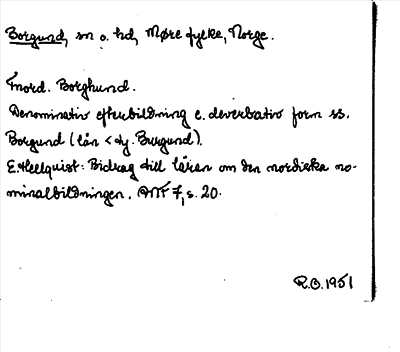 Borgund, sn o. hd, Møre fylke, Norge.
Fnord. Borghund.
Denominativ efterbildning e. deverbativ form ss.
Borgund (lån < ty. Burgund).
E. Hellquist: Bidrag till läran om den nordiska no-
minalbildningen. ANF 7, s. 20.
R.O. 1951